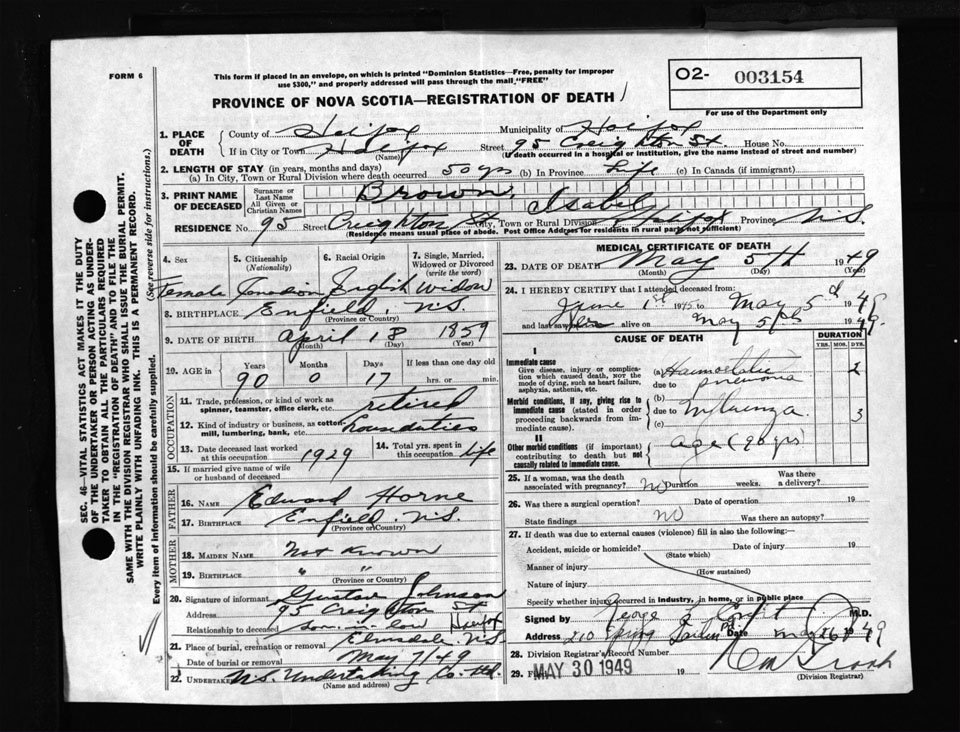 FORM 6
This form if placed in an envelope, on which is printed "Dominion Statistics—Free, penalty for improper
use $300," and properly addressed will pass through the mail "FREE"
O2- 003154
For use of the Department only
PROVINCE OF NOVA SCOTIA—REGISTRATION OF DEATH
SEC. 46—VITAL STATISTICS ACT MAKES IT THE DUTY
OF THE UNDERTAKER OR PERSON ACTING AS UNDER-
TAKER TO OBTAIN ALL THE PARTICULARS REQUIRED
IN THE "REGISTRATION OF DEATH" AND TO FILE THE
SAME WITH THE DIVISION REGISTRAR WHO SHALL ISSUE THE BURIAL PERMIT.
WRITE PLAINLY WITH UNFADING INK. THIS IS A PERMANENT RECORD.
Every item of information should be carefully supplied. (See reverse side for instructions.)
1. PLACE OF DEATH
County of Halifax Municipality of Halifax
If in City or Town Halifax Street 95 Creighton St. House No.
(Name) (If death occurred in a hospital or institution, give the name instead of street and number)
2. LENGTH OF STAY (in years, months and days)
(a) In City, Town or Rural Division where death occurred 50 yrs (b) In Province Life (c) In Canada (if immigrant)
3. PRINT NAME OF DECEASED
Surname or Last Name Brown,
All Given or Christian Names Isabel
RESIDENCE No. 95 Street Creighton St City, Town or Rural Division Halifax Province N.S.
(Residence means usual place of abode. Post Office Address for residents in rural parts not sufficient)
4. Sex
Female
5. Citizenship
(Nationality)
Canadian
6. Racial Origin
English
7. Single, Married,
Widowed or Divorced
(write the word)
Widow
8. BIRTHPLACE Enfield, N.S.
(Province or Country)
9. DATE OF BIRTH April 18 1859
(Month) (Day) (Year)
10. AGE in Years Months Days If less than one day old
90 0 17 hrs. or min.
OCCUPATION
11. Trade, profession, or kind of work as
spinner, teamster, office clerk, etc. retired
12. Kind of industry or business, as cotton-
mill, lumbering, bank, etc. houseduties
13. Date deceased last worked
at this occupation 1929
14. Total yrs. spent in
this occupation life
15. If married give name of wife
or husband of deceased
FATHER
16. NAME Edward Horne
17. BIRTHPLACE Enfield, N.S.
(Province or Country)
MOTHER
18. MAIDEN NAME Not known
19. BIRTHPLACE " "
(Province or Country)
20. Signature of informant Gustave Johnson
Address 95 Creighton St
Halifax
Relationship to deceased son-in-law
21. Place of burial, cremation or removal Elmsdale, N.S.
Date of burial or removal May 7/49
22. Undertaker N.S. Undertaking Co. Ltd.
(Name and address)
MEDICAL CERTIFICATE OF DEATH
23. DATE OF DEATH May 5th 1949
(Month) (Day) (Year)
24. I HEREBY CERTIFY that I attended deceased from:
June 1st 1945 to May 5 1949
and last saw her alive on May 5th 1949.
CAUSE OF DEATH
DURATION
YRS. MOS. DYS.
I
Immediate cause
Give disease, injury or complica-
tion which caused death, NOT the
mode of dying, such as heart failure,
asphyxia, asthenia, etc.
(a) pneumonia 2
due to
Morbid conditions, if any, giving rise to
immediate cause (stated in order
proceeding backwards from im-
mediate cause).
(b)
due to Influenza 3
(c)
II
Other morbid conditions (if important)
contributing to death but not
causally related to immediate cause.
age (90 yrs)
25. If a woman, was the death
associated with pregnancy? no Duration weeks. Was there a delivery?
26. Was there a surgical operation? Date of operation 19
State findings no Was there an autopsy?
27. If death was due to external causes (violence) fill in also the following:
Accident, suicide or homicide? Date of injury 19
(State which)
Manner of injury
(How sustained)
Nature of injury
Specify whether injury occurred in industry, in home, or in public place
Signed by George M.D.
Address 210 Date May 1949
28. Division Registrar's Record Number
29. Filed MAY 30 1949 19
(Division Registrar)